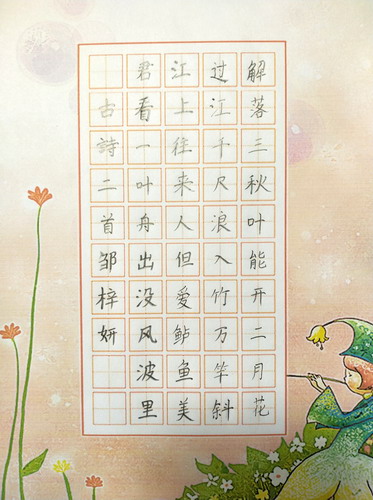 解落三秋叶能开二月花
过江千尺浪入竹万竿斜
江上往来人但爱鲈鱼美
君看一叶舟出没风波里
古詩二首邹梓妍